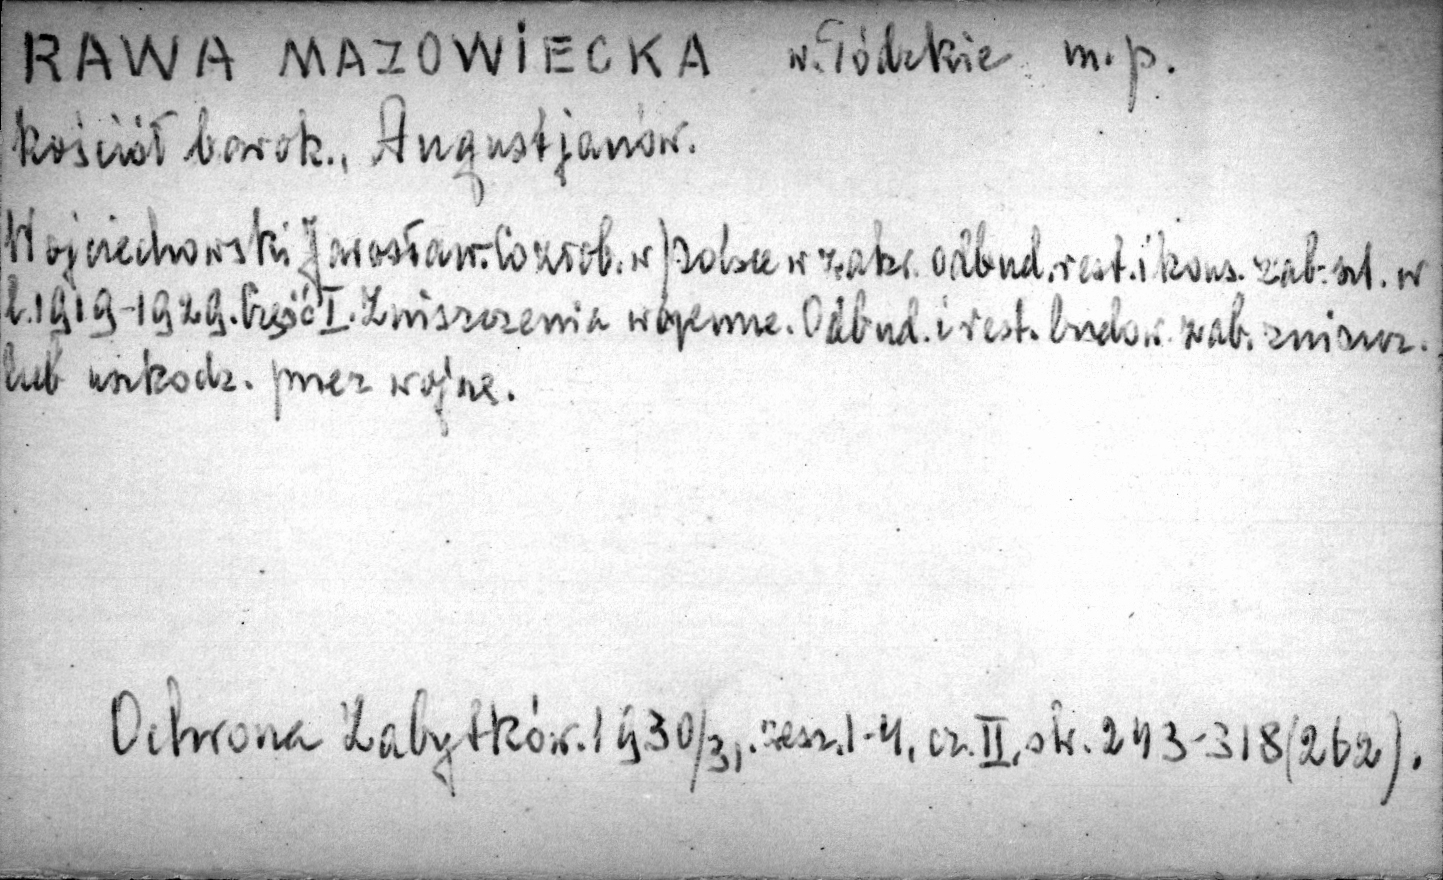 RAWA MAZOWIECKA w. Łódzkie m.p.
kościół barok., Augustjanów.
Wojciechowski Jarosław. Co zrob. w Polsce w zakr. odbud. rest. i kons. zab. szt. w
l. 1919-1929. Część I. Zniszczenia wojenne. Odbud. i rest. budow. zab. zniszcz.
lub uszkodz. przez wojnę.
Ochrona Zabytków. 1930/31, zesz. 1-4, cz. II, str. 243-318 (262).